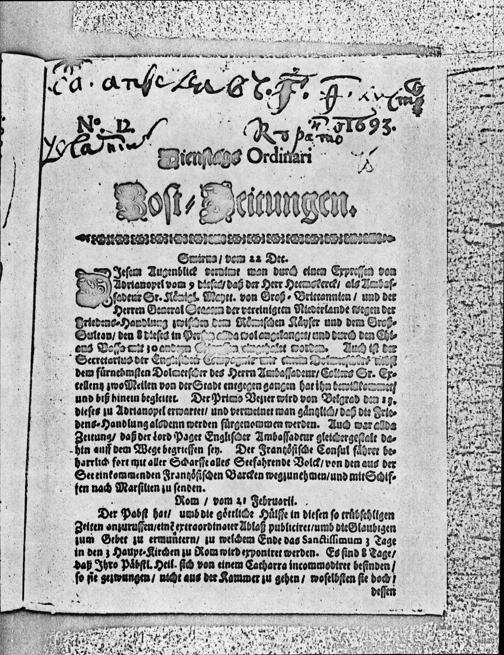 No. 12.
1693.
Dienstags Ordinari
Post-Zeitungen.
Smirna/ vom 22 Dec.
Diesem Augenblick vernimt man durch einen Expressen von
Adrianopel vom 9 dieses/ daß der Herr Heemskerck/ als Ambas-
sadeur Sr. Königl. Mayt. von Groß-Brittannien/ und der
Herren General Staaten der vereinigten Niederlande wegen der
Friedens-Handlung zwischen dem Römischen Käyser und dem Groß-
Sultan/ den 8 dieses in Person alda wol angelanget/ und durch den
aus Basso mit 30 andern
Secretarius der Englischen
dem fürnehmsten Dolmetscher des Herrn Ambassadeur/ Collers Sr. Ex-
cellentz zwo Meilen von der Stadt entgegen gangen hat ihn bewillkommet/
und biß hinein begleitet. Der Primo Vezier wird von Belgrad den 19.
dieses zu Adrianopel erwartet/ und vermeinet man gäntzlich/ daß die Frie-
dens-Handlung alsdenn werden fürgenommen werden. Auch war allda
Zeitung/ daß der Lord Paget Englischer Ambassadeur gleichergestalt da-
hin auff dem Wege begriffen sey. Der Frantzösische Consul führet be-
harrlich fort mit aller Schärffe alles Seefahrende Volck/ von den aus der
See einkommenden Frantzösischen Barcken wegzunehmen/ und mit Schif-
fen nach Marsilien zu senden.
Rom/ vom 21 Februarii.
Der Pabst hat/ umb die göttliche Hülffe in diesen so trübseligen
Zeiten anzuruffen/ ein extraordinairer Ablaß publiciret/ umb die Glaubigen
zum Gebet zu ermuntern/ zu welchem Ende das Sanctissimum 3 Tage
in den 3 Haupt-Kirchen zu Rom wird exponiret werden. Es sind 8 Tage/
daß Ihro Päbstl. Heil. sich von einem Catharro incommodiret befinden/
so sie gezwungen/ nicht aus der Kammer zu gehen/ woselbsten sie doch/
dessen